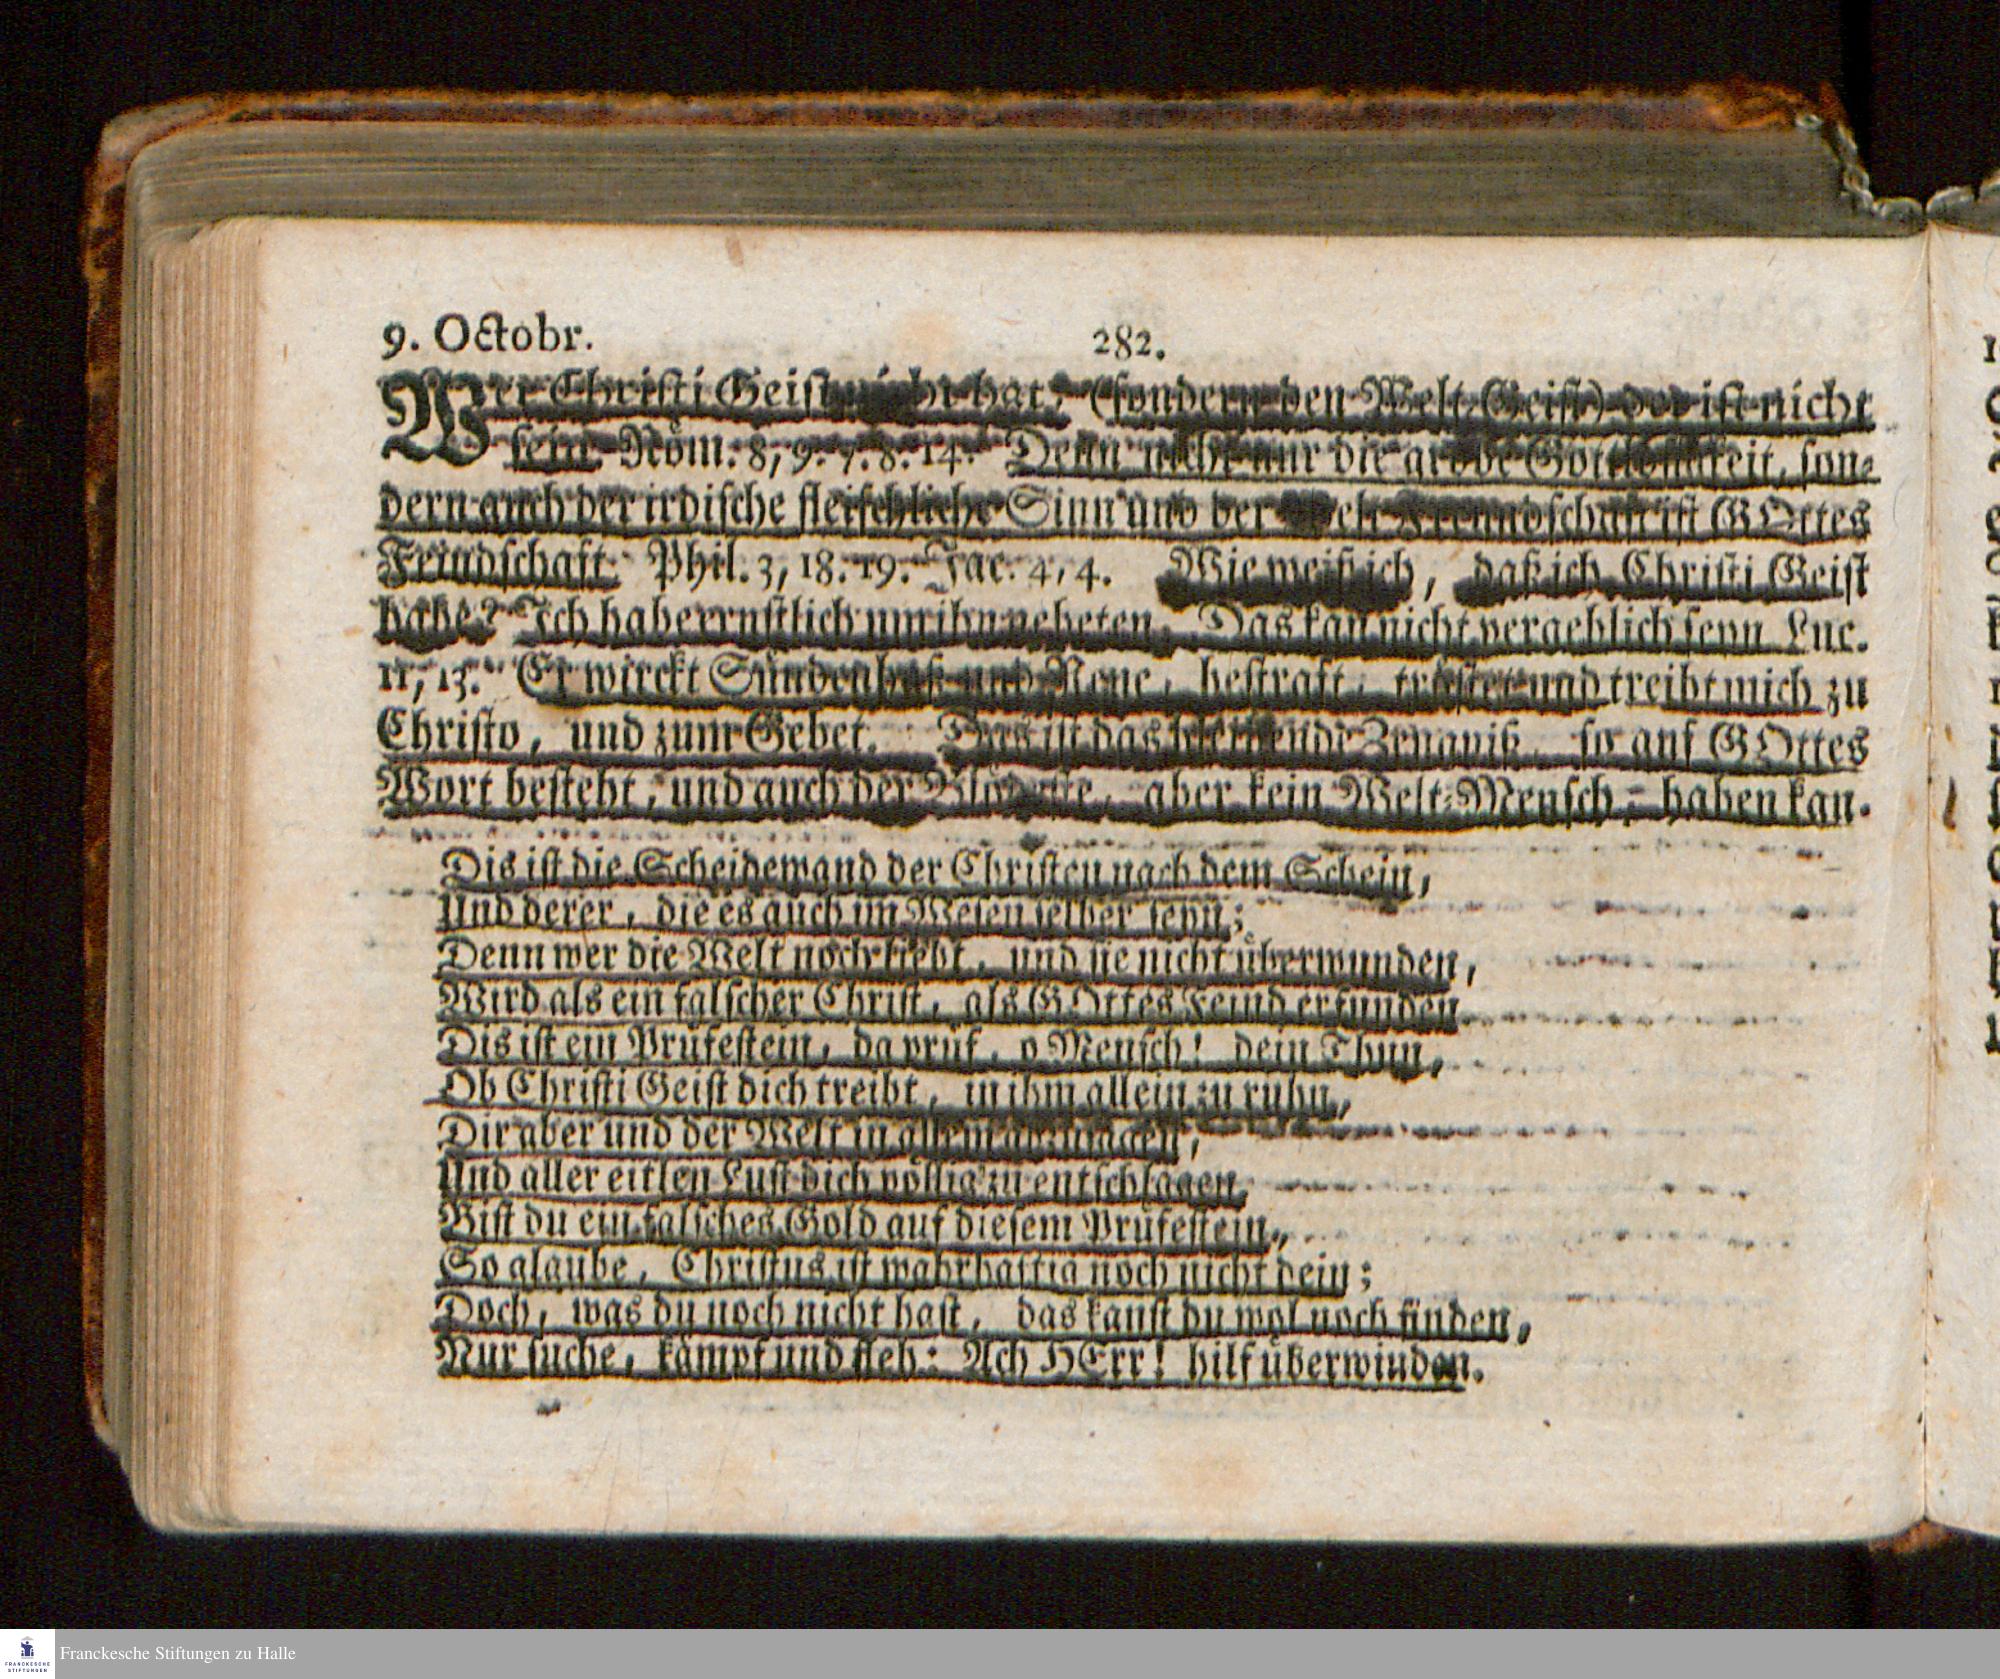 9. Octobr. 282.
Wer Christi Geist nicht hat, (sondern den Welt-Geist) der ist nicht
sein. Röm. 8, 9. 7. 8. 14. Denn nicht nur die grobe Gottlosigkeit, son-
dern auch der irdische fleischliche Sinn und der Welt Freundschaft ist GOttes
Feindschaft. Phil. 3, 18. 19. Jac. 4, 4. Wie weiß ich, daß ich Christi Geist
habe? Ich habe ernstlich um ihn gebeten. Das kan nicht vergeblich seyn Luc.
11, 13. Er wirckt Sünden und Reue, bestraft, tröstet und treibt mich zu
Christo, und zum Gebet. Das ist das Zeugniß, so auf GOttes
Wort besteht, und auch der Blödeste, aber kein Welt-Mensch, haben kan.
Dis ist die Scheidewand der Christen nach dem Schein,
Und derer, die es auch im Wesen selber seyn;
Denn wer die Welt noch liebt, und sie nicht überwunden,
Wird als ein falscher Christ, als GOttes Feind erfunden.
Dis ist ein Prüfestein, da prüf, o Mensch! dein Thun,
Ob Christi Geist dich treibt, in ihm allein zu ruhn,
Dir aber und der Welt in allem abzusagen,
Und aller eitlen Lust dich völlig zu entschlagen.
Bist du ein falsches Gold auf diesem Prüfestein,
So glaube, Christus ist wahrhaftig noch nicht dein;
Doch, was du noch nicht hast, das kanst du wol noch finden,
Nur suche, kämpf und fleh: Ach HErr! hilf überwinden.
FRANCKESCHE
STIFTUNGEN
Franckesche Stiftungen zu Halle